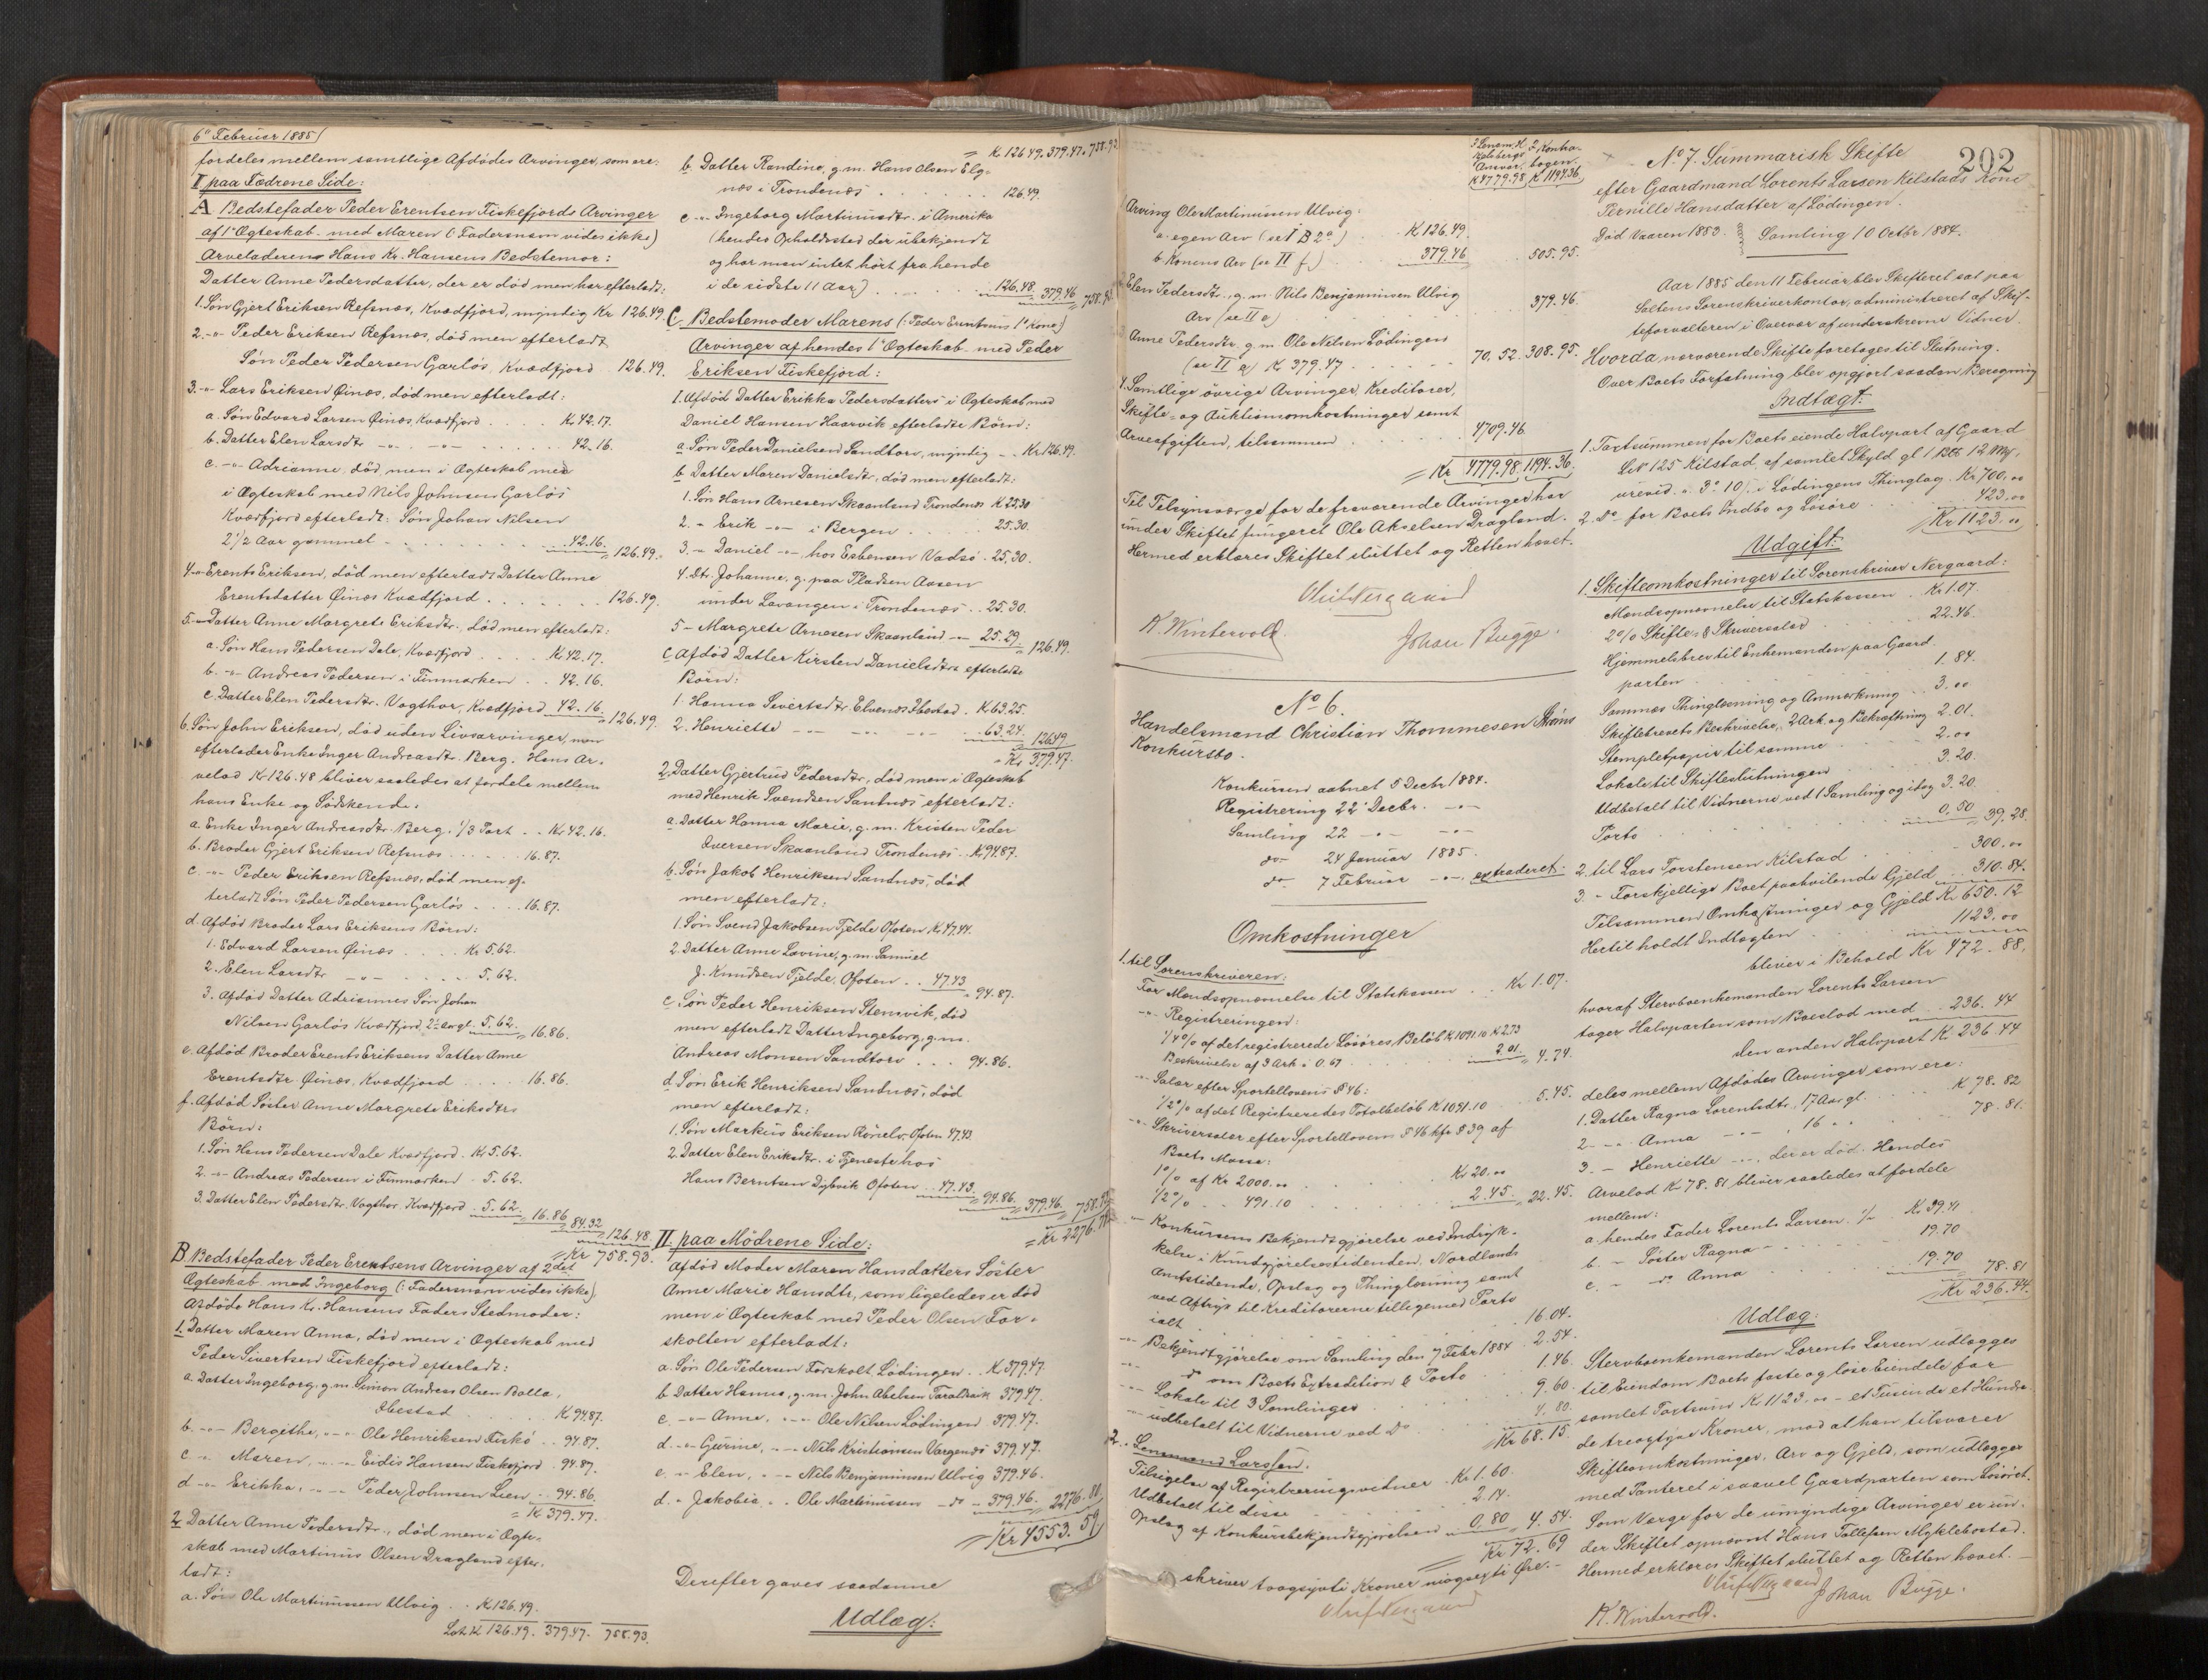 6' Februar 1885
fordeles mellem samtlige Afdødes Arvinger, som ere:
I paa Fædrene Side:
A Bedstefader Peder Erentsen Fiskefjords Arvinger
af 1' Ægteskab med Maren (: Fadersnavn vides ikke)
Arveladeren Hans Kr. Hansens Bedstemor:
Datter Anne Pedersdatter, der er død men har efterladt:
1. Søn Gjert Eriksen Refsnæs, Kvædfjord, myndig Kr 126.49.
2. -"- Peder Eriksen Refsnæs, død men efterladt
Søn Peder Pedersen Garløs, Kvædfjord 126.49.
3. -"- Lars Eriksen Øinæs, død men efterladt:
a. Søn Edvard Larsen Øinæs, Kvædfjord . . . Kr 42.17.
b. Datter Elen Larsdtr -"- -"- . . 42.16.
c. -"- Adrianne, død men i Ægteskab med
i Ægteskab med Nils Johnsen Garløs
Kvædfjord efterladt: Søn Johan Nilsen
2 1/2 Aar gammel . . . 42.16. = 126.49.
4. -"- Erents Eriksen, død men efterladt Datter Anne
Erentsdatter Øinæs Kvædfjord . . . 126.49.
5. -"- Datter Anne Margrete Eriksdtr., død men efterladt:
a. Søn Hans Pedersen Dale, Kvædfjord . . . Kr 42.17.
b. -"- Andreas Pedersen i Finmarken . . 42.16.
c. Datter Elen Pedersdtr. Vogthor, Kvædfjord 42.16. = 126.49.
6. Søn John Eriksen, død uden Livsarvinger, men
efterlader Enke Inger Andreasdt. Berg. Hans Ar-
velod Kr 126.48 bliver saaledes at fordele mellem
hans Enke og Sødskende:
a. Enke Inger Andreasdtr. Berg, 1/3 Part . . Kr 42.16.
b. Broder Gjert Eriksen Refsnæs . . . 16.87.
c. -"- Peder Eriksen Refsnæs, død men ef-
terladt Søn Peder Pedersen Garløs . . . 16.87.
d. Afdød Broder Lars Eriksens Børn:
1. Edvard Larsen Øinæs . . . Kr 5.62.
2. Elen Larsdtr -"- . . . 5.62.
3. Afdød Datter Adriannes Søn Johan
Nilsen Garløs Kvædfjord, 2 1/2 Aar gl. 5.62. = 16.86.
e. Afdød Broder Erents Eriksens Datter Anne
Erentsdtr Øinæs, Kvædfjord . . . 16.86.
f. Afdød Søster Anne Margrete Eriksdtrs
Børn:
1. Søn Hans Pedersen Dale Kvædfjord. Kr 5.62.
2. -"- Andreas Pedersen i Finmarken . 5.62.
3. Datter Elen Pedersdtr. Vogthor Kvædfjord . 5.62. = 16.86 = 84.32 = 126.48.
= Kr 758.93.
B. Bedstefader Peder Erentsens Arvinger af 2det
Ægteskab med Ingeborg (: Fadersnavn vides ikke)
Afdøde Hans Kr. Hansens Faders Stedmoder:
1. Datter Maren Anna, død men i Ægteskab med
Peder Sivertsen Fiskefjord efterladt:
a. Datter Ingeborg. g. m. Simon Andreas Olsen Bolla,
Ibestad . . . Kr 94.87.
b. -"- Bergithe, -"- Ole Henriksen Fiskø . . 94.87.
c. -"- Maren, -"- Eidis Hansen Fiskefjord . 94.87.
d. -"- Erikka, -"- Peder Johnsen Lien . . 94.86.
= Kr 379.47.
2. Datter Anne Pedersdtr., død men i Ægte-
skab med Martinus Olsen Dragland efter-
ladt:
a. Søn Ole Martinussen Ulvig . . Kr 126.49.
Lat. Kr 126.49. 379.47. 758.93.
= Kr 126.49. 379.47. 758.93
b. Datter Randine, g. m. Hans Olsen Elg-
næs i Trondenæs . . . 126.49.
c. -"- Ingeborg Martinusdtr. i Amerika
(hendes Opholdssted der ubekjendt
og har man intet hørt fra hende
i de sidste 11 Aar) . . . 126.48. = 379.46 = 758.93
C. Bedstemoder Marens (: Peder Erentsens 1' Kone)
Arvinger af hendes 1' Ægteskab med Peder
Eriksen Fiskefjord:
1. Afdød Datter Erikka Pedersdatters i Ægteskab med
Daniel Hansen Haarvik efterladte Børn:
a. Søn Peder Danielsen Sandtorv, myndig - . Kr 126.49.
b. Datter Maren Danielsdtr., død men efterladt:
1. Søn Hans Arnesen Skaanland Trondenæs Kr 25.30
2. - Erik -"- i Bergen . . . 25.30.
3. - Daniel -"- hos Esbensen Vadsø . 25.30.
4. Dtr. Johanne, g. paa Pladsen Aasen
under Lavangen i Trondenæs . . 25.30.
5 - Margrete Arnesen Skaanland -"- 25.29. = 126.49.
c. Afdød Datter Kirsten Danielsdtrs efterladte
Børn:
1. Hanna Sivertsdtr. Elvenes Ibestad . Kr 63.25.
2. Henriette -"- -"- -"- . . 63.24. = 126.49
= Kr 379.47.
2. Datter Gjertrud Pedersdtr., død men i Ægteskab
med Henrik Svendsen Sandnæs efterladt:
a. Datter Hanna Marie, g. m. Kristen Peder
Iversen Skaanland Trondenæs . Kr 94.87.
b. Søn Jakob Henriksen Sandnæs, død
men efterladt:
1. Søn Svend Jakobsen Fjelde Ofoten Kr 47.44.
2. Datter Anne Lovine, g. m. Samuel
J. Knudsen Fjelde, Ofoten . . 47.43 = 94.87.
c. Søn Peder Henriksen Stensvik, død
men efterladt Datter Ingeborg, g. m.
Andreas Monsen Sandtorv . . . 94.86.
d. Søn Erik Henriksen Sandnæs, død
men efterladt:
1. Søn Markus Eriksen Ofoten 47.43.
2. Datter Elen Eriksdtr. i Tjeneste hos
Hans Berntsen Dybvik Ofoten . . 47.43. = 94.86. = 379.46. = 758.93
= Kr 2276.79
II paa Mødrene Side:
Afdød Moder Maren Hansdatters Søster
Anne Marie Hansdtr, som ligeledes er død
men i Ægteskab med Peder Olsen For-
skolten efterladt:
a. Søn Ole Pedersen Forskolt, Lødingen . . Kr 379.47.
b. Datter Hanna, g. m. John Abelsen Taraldsvik 379.47.
c. -"- Anne, -"- Ole Nilsen Lødingen 379.47.
d. -"- Gurine, -"- Nils Kristiansen Vargenæs 379.47.
e. -"- Elen, -"- Nils Benjaminsen Ulvig 379.46.
d. - Jakobia -"- Ole Martinussen -do- 379.46. = 2276.80
= Kr 4553.59
Derefter gaves saadanne
Udlæg:
Kr 4779.98 Kr 1194.36
1. Arving Ole Martinussen Ulvig:
a. egen Arv (se I B 2a) . . Kr 126.49.
b. Konens Arv (se II f.) . . 379.46 . 505.95.
2. Elen Pedersdtr., g. m. Nils Benjaminsen Ulvig
Arv (se II e) . . . 379.46.
3. Anne Pedersdtr. g. m. Ole Nilsen Lødingen
(se II c) Kr 379.47 . . . 70.52. 308.95.
4. Samtlige øvrige Arvinger, Kreditorer,
Skifte- og Auktionsomkostninger samt
Arveafgiften, tilsammen . . . 4709.46.
= Kr 4779.98. 1194.36.
Til Tilsynsværge for de fraværende Arvinger har
under Skiftet fungeret Ole Akselsen Dragland.
Hermed erklæres Skiftet sluttet og Retten hævet.
Oluf Nergaard
K. Wintervold. Johan Bugge.
No 6.
Handelsmand Christian Thommesen Strøms
Konkursbo.
Konkursen aabnet 5 Decbr 1884.
Registrering 22' Decbr. -"-
Samling 22 -"- -"-
do- 24 Januar 1885.
do- 7 Februar -"-, extraderet.
Omkostninger
1. til Sorenskriveren:
For Mandsopnævnelse til Statskassen . . Kr 1.07.
-"- Registreringen:
1/4 % af det registrerede Løsøres Beløb Kr 1091.10 Kr 2.73
Beskrivelse af 3 Ark à 0.67 . . . 2.01. = 4.74.
-"- Salær efter Sportellovens § 46:
1/2 % af det Registreredes Totalbeløb Kr 1091.10 . . 5.45.
-"- Skriversalær efter Sportellovens § 46 kfr § 39 af
Boets Masse:
1 % af Kr 2000.00 . . . Kr 20.00
1/2 % . . 491.10 . . . 2.45. = 22.45.
-"- Konkursens Bekjendtgjørelse ved Indryk-
kelse i Kundgjørelsestidenden, Nordlands
Amtstidende, Opslag og Thinglæsning samt
ved Aftryk til Kreditorerne tilligemed Porto
ialt . . . 16.04.
-"- Bekjendtgjørelse om Samling den 7 Febr 1884 . 2.54.
-"- do om Boets Extradition & Porto . . 1.46.
-"- Lokale til 3 Samlinger . . . 9.60.
-"- udbetalt til Vidnerne ved do . . . 4.80.
Kr 68.15.
2. Lensmand Larssen.
Tilsigelse af Registreringsvidner . Kr 1.60.
Udbetalt til disse . . . 2.14.
Opslag af Konkursbekjendtgjørelsen . 0.80 = 4.54.
= Kr 72.69
skriver toogsytti Kroner niogsexti Øre.-
Oluf Nergaard
202
No 7. Summarisk Skifte
efter Gaardmand Lorents Larsen Kilstads Kone
Pernille Hansdatter af Lødingen.
Død Vaaren 1883. Samling 10 Octbr 1884.
Aar 1885 den 11 Februar blev Skifteret sat paa
Saltens Sorenskriverkontor, administreret af Skif-
teforvalteren i Overvær af underskrevne Vidner.
Hvorda nærværende Skifte foretoges til Slutning.
Over Boets Forfatning blev opgjort saadan Beregning
Indtægt:
1. Taxtsummen for Boets eiende Halvpart af Gaard
LN 125 Kilstad, af samlet Skyld gl. 1 12 Mrk.
urevid. 3. 10 i Lødingens Thinglag. Kr 700.00
2. do for Boets Indbo og Løsøre . . . 423.00
Kr 1123.00
Udgift:
1. Skifteomkostninger til Sorenskriver Nergaard:
Mandsopnævnelse til Statskassen . . Kr 1.07.
2 % Skifte- & Skriversalær . . . 22.46.
Hjemmelsbrev til Enkemanden paa Gaard-
parten . . . 1.84.
Sammes Thinglæsning og Anmærkning . . 3.00
Skiftebrevets Beskrivelse, 2 Ark, og Bekræftning 2.01.
Stempletpapir til samme . . . 2.00
Lokale til Skifteslutningen . . . 3.20.
Udbetalt til Vidnerne ved 1 Samling og idag 3.20.
Porto . . . 0.50 = 39.28.
2. til Lars Torstensen Kilstad . . . 300.00
3. - Forskjellige Boet paahvilende Gjeld . . 310.84.
Tilsammen Omkostninger og Gjeld Kr 650.12
Hertil holdt Indtægten . . . 1123.00
bliver i Behold Kr 472.88.
hvoraf Stervboenkemanden Lorents Larsen
tager Halvparten som Boeslod med . . 236.44
den anden Halvpart Kr 236.44
deles mellem Afdødes Arvinger som ere:
1. Datter Ragna Lorentsdtr., 17 Aar gl. . . Kr 78.82
2. -"- Anna -"- , 16 " " . . 78.81.
3. - Henriette -"-, der er død. Hendes
Arvelod Kr 78.81 bliver saaledes at fordele
mellem:
a. hendes Fader Lorents Larsen 1/2 Kr 39.41
b. - Søster Ragna . . . 19.70
c. - do Anna . . . 19.70 78.81
Kr 236.44.
Udlæg:
Stervboenkemanden Lorents Larsen udlægges
til Eiendom Boets faste og løse Eiendele for
samlet Taxtsum Kr 1123.00 - et Tusinde et Hundre-
de treogtyve Kroner, mod at han tilsvarer
Skifteomkostninger, Arv og Gjeld, som udlægges
med Panteret i saavel Gaardparten som Løsøret.
Som Værge for de umyndige Arvinger er un-
der Skiftet opnævnt Hans Tollefsen Myklebostad.
Hermed erklæres Skiftet sluttet og Retten hævet.
Oluf Nergaard
K. Wintervold. Johan Bugge.